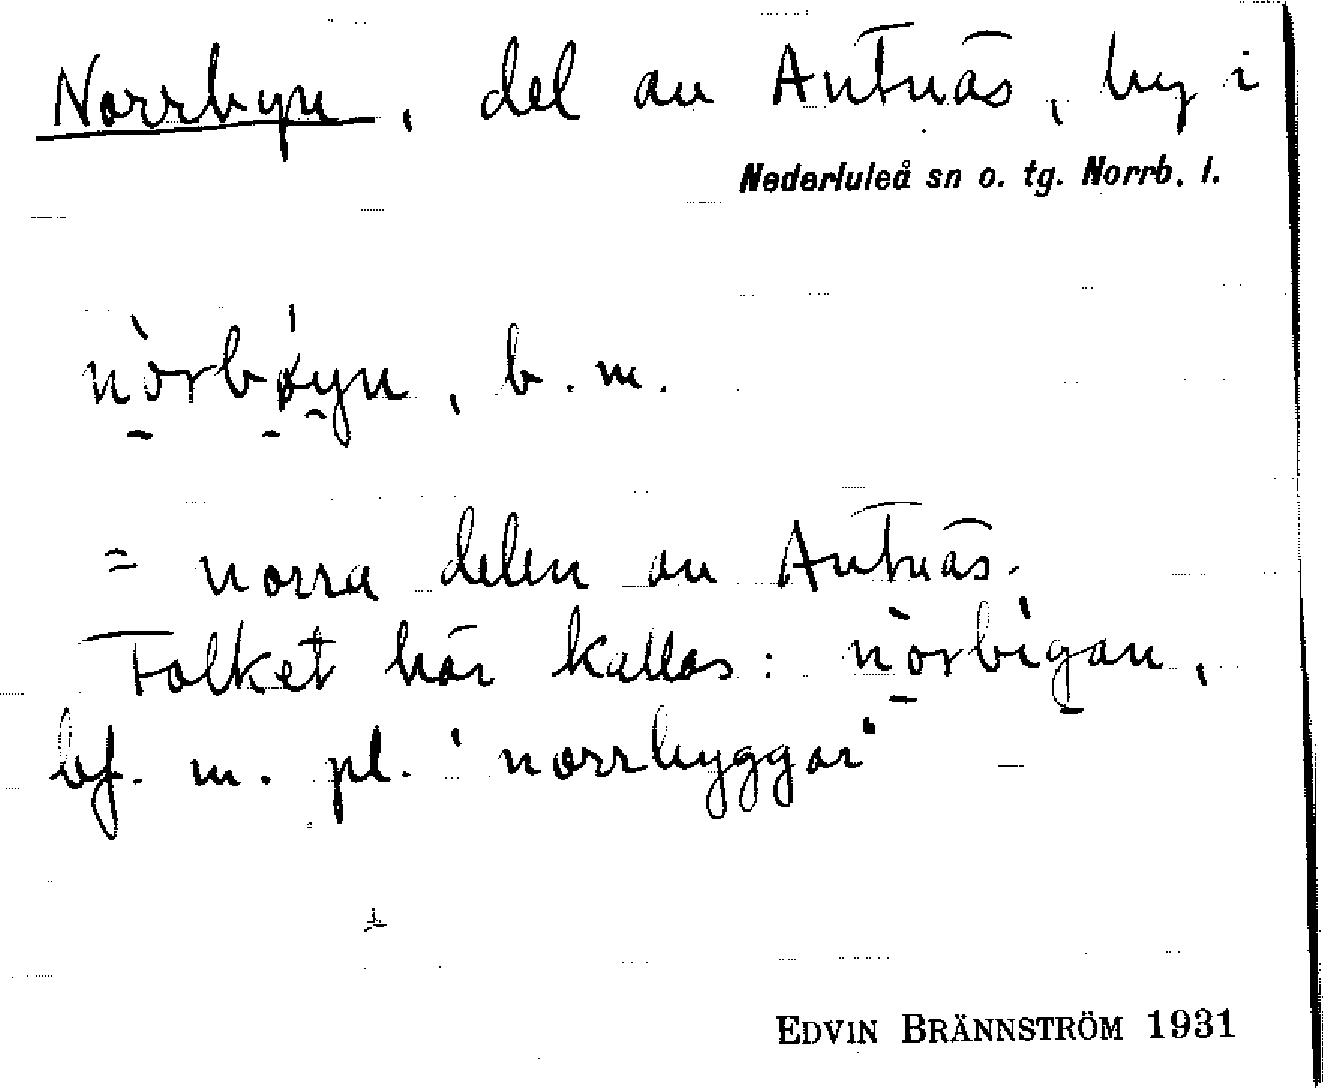 Norrbyn, del av Antnäs, by i
Nederluleå sn o. tg. Norrb. l.
nòrbøyn, b. m.
= norra delen av Antnäs.
Folket här kallas: nòrbìgan,
bf. m. pl. "norrbyggar" —
EDVIN BRÄNNSTRÖM 1931